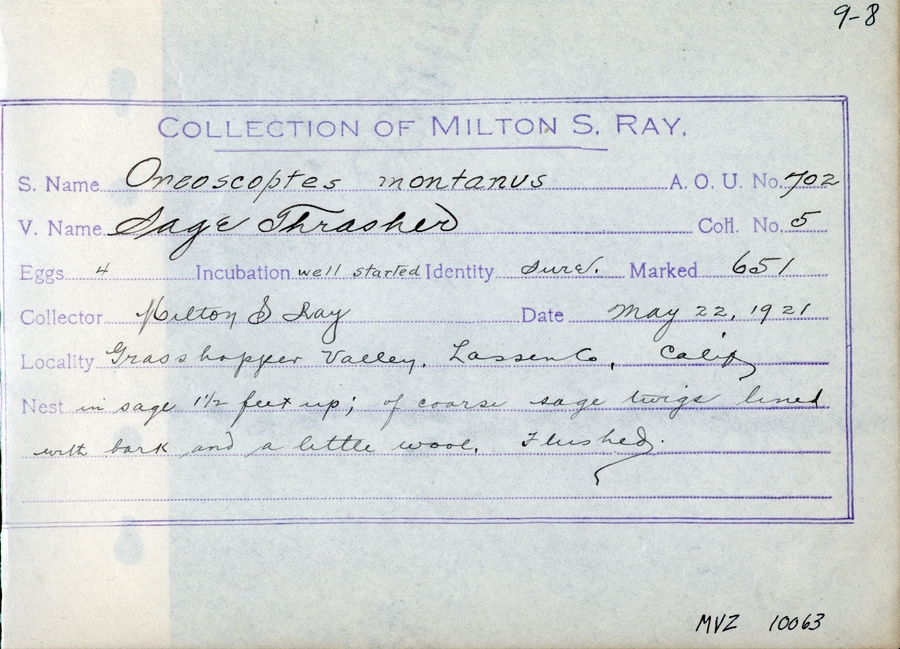 9-8
COLLECTION OF MILTON S. RAY.
S. Name Oreoscoptes montanus A. O. U. No. 702
V. Name Sage Thrasher Coll. No. 5
Eggs 4 Incubation well started Identity Sure. Marked 651
Collector Milton S Ray Date May 22, 1921
Locality Grasshopper Valley, Lassen Co, Calif
Nest in sage 1½ feet up; of coarse sage twigs lined
with bark and a little wool. Flushed.
MVZ 10063